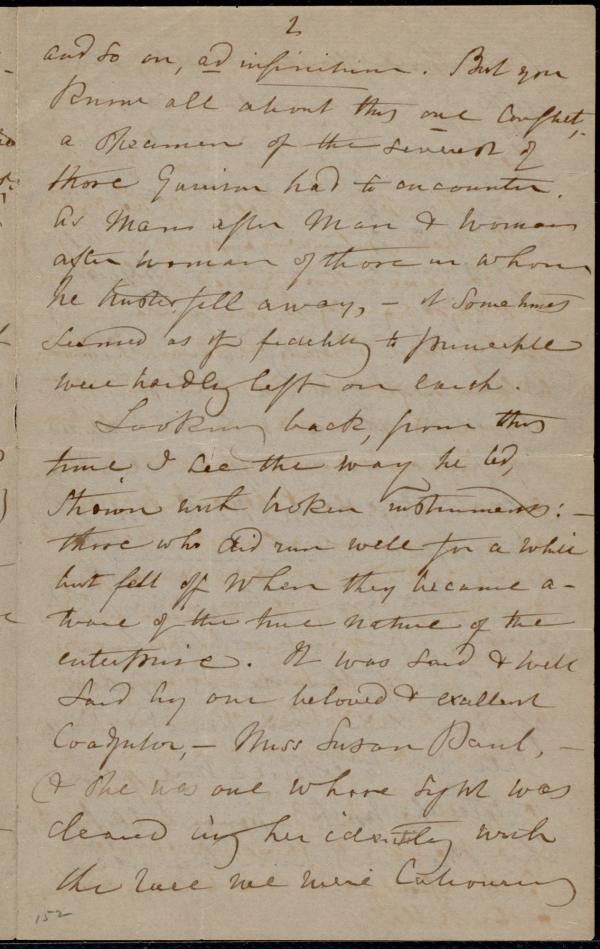 2
and so on, ad infinitum. But you
know all about this one conflict,
a specimen of the severest of
those Garrison had to encounter.
As man after man & woman
after woman of those in whom
he trusted fell away, – it sometimes
seemed as if fidelity to principle
were hardly left on earth.
Looking back, from this
time I see the way he led,
strown with broken instruments: –
those who did run well for a while
but fell off when they became a-
ware of the true nature of the
enterprise. It was said & well
said by our beloved & excellent
Coadjutor, – Miss Susan Paul, –
(& she was one whose sight was
cleared by her identity with
the race we were labouring
152